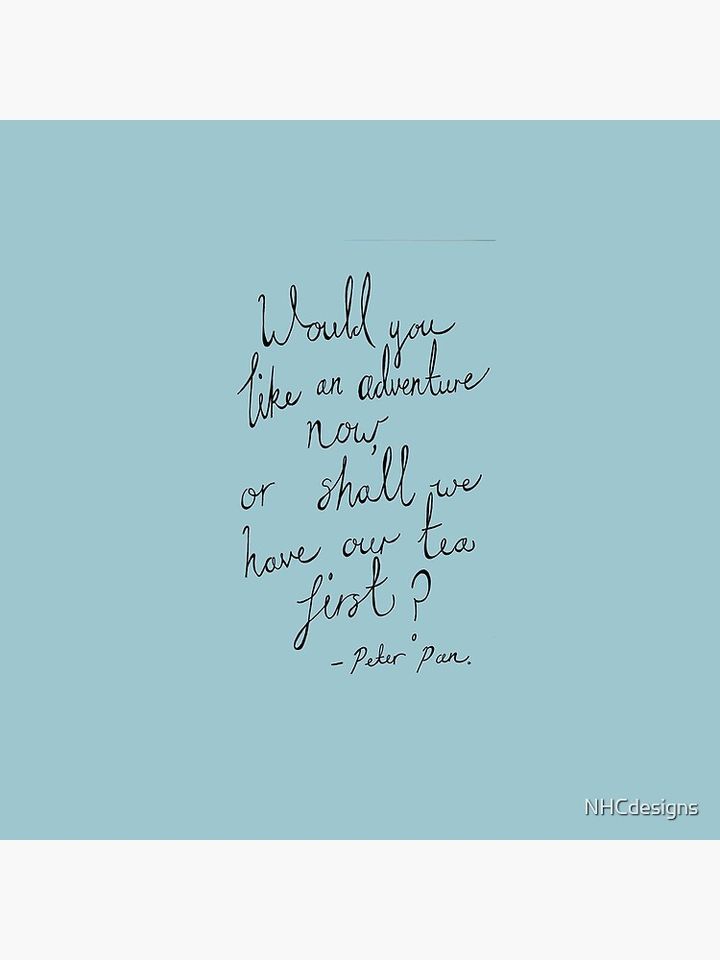 Would you
like an adventure
now,
or shall we
have our tea
first?
- Peter Pan.
NHCdesigns